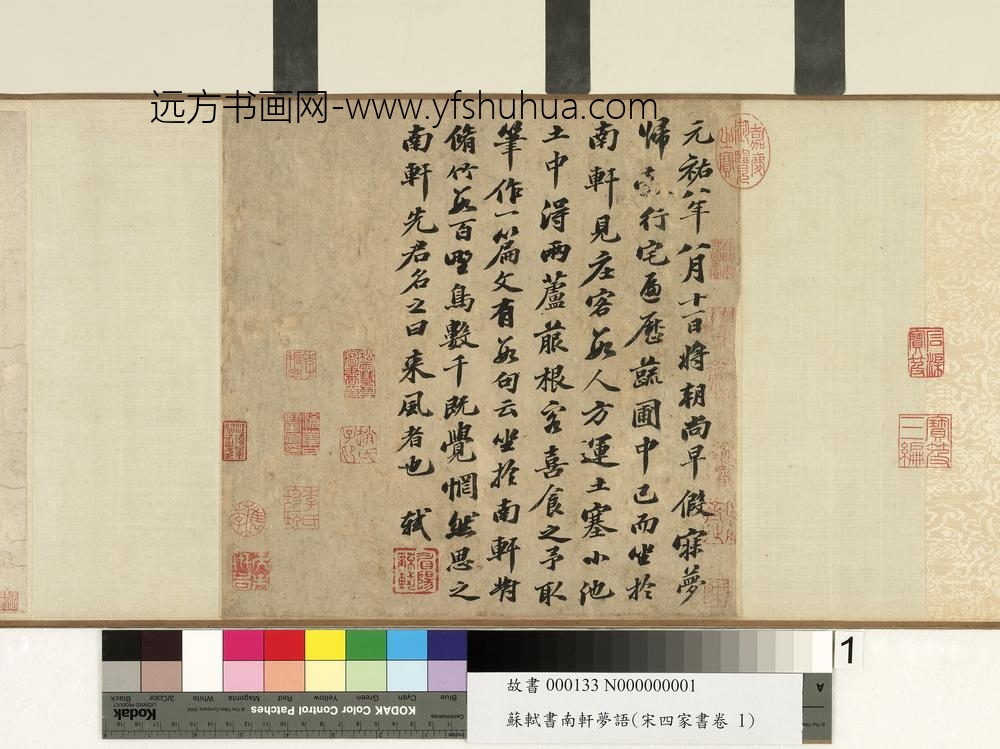 远方书画网-www.yfshuhua.com
元祐八年八月十一日將朝尚早假寐夢
歸 行宅遍歷蔬圃中已而坐於
南軒見庄客數人方運土塞小池
土中得兩蘆菔根客喜食之予取
筆作一篇文有數句云坐於南軒對
脩竹數百野鳥數千既覺惘然思之
南軒先君名之曰来風者也 軾
嘉慶御覽之寶
眉陽蘇軾
石渠寶笈
寶笈三編
KODAK Color Control Patches
Kodak
Blue
Cyan
Green
Yellow
Red
Magenta
White
3/Color
Black
Centimetres
1
A
故書 000133 N000000001
蘇軾書南軒夢語(宋四家書卷 1)